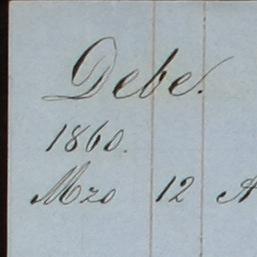 Debe.
1860.
Mzo 12 A